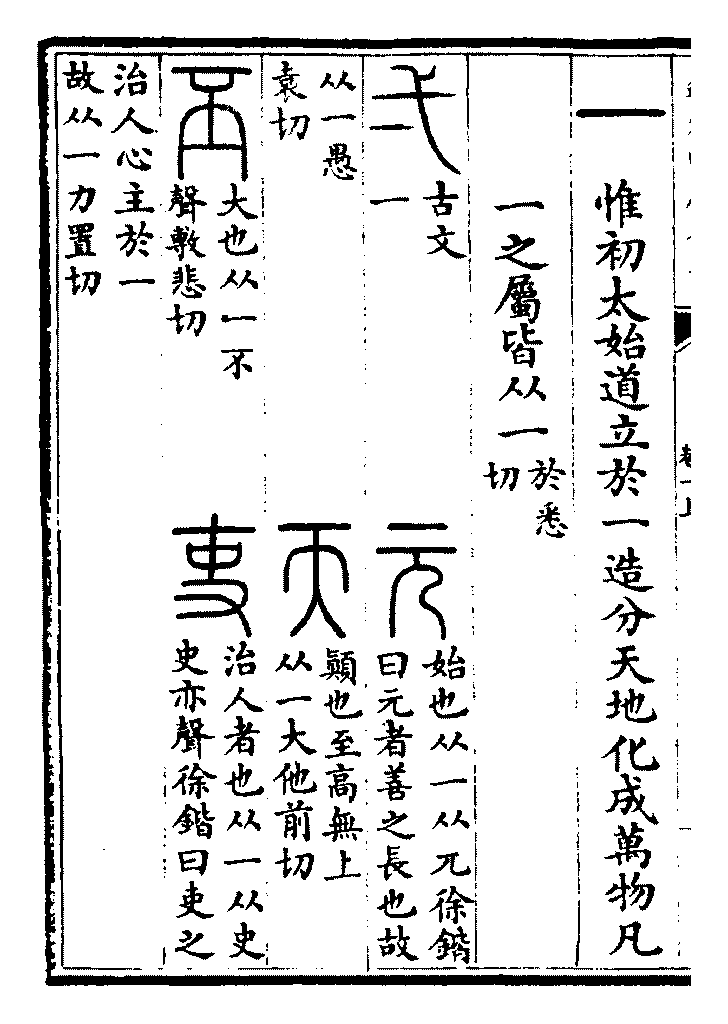 一惟初太始道立於一造分天地化成萬物凡
一之屬皆从一於悉
切
弌古文
一
元始也从一从兀徐鍇
曰元者善之長也故
从一愚
袁切
天顛也至高無上
从一大他前切
丕大也从一不
聲敷悲切
吏治人者也从一从史
史亦聲徐鍇曰吏之
治人心主於一
故从一力置切